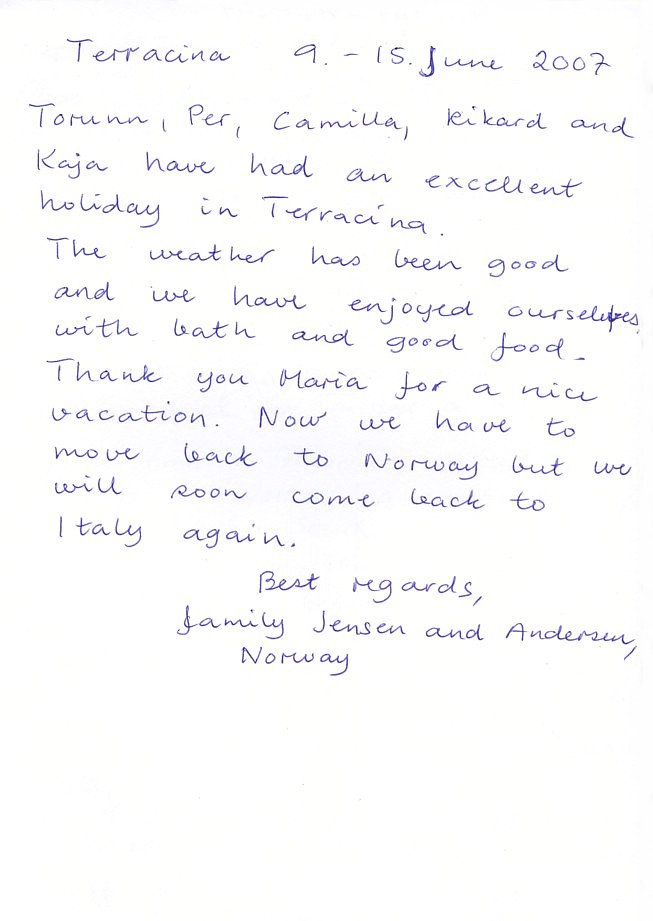 Terracina 9. - 15. June 2007
Torunn, Per, Camilla, Rikard and
Kaja have had an excellent
holiday in Terracina.
The weather has been good
and we have enjoyed ourselves
with bath and good food.
Thank you Maria for a nice
vacation. Now we have to
move back to Norway but we
will soon come back to
Italy again.
Best regards,
family Jensen and Andersen,
Norway